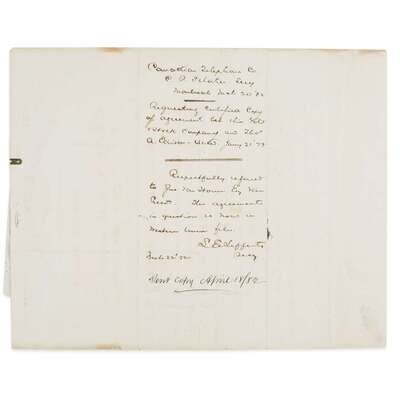 Canadian Telephone Co
Secy
Montreal Feb 20/82
Requesting Certified Copy
of agreement bet this
Company and Thos
A. Edison dated Jany 21/79
Respectfully referred
to
Prest The agreement
in question is now in
Western Union file.
Secy
Feb 23/82
Sent Copy April 18/82